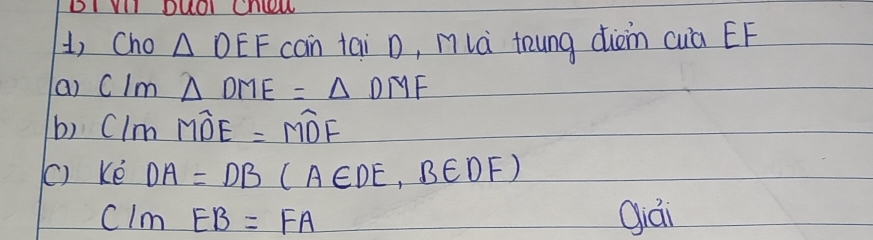 BTVN buổi chiều
1) Cho Δ DEF cân tại D, M là trung điểm của EF
a) C/m Δ DME = Δ DMF
b) C/m MD̂E = MD̂F
c) Kẻ DA = DB ( A ∈ DE, B ∈ DF )
C/m EB = FA
Giải